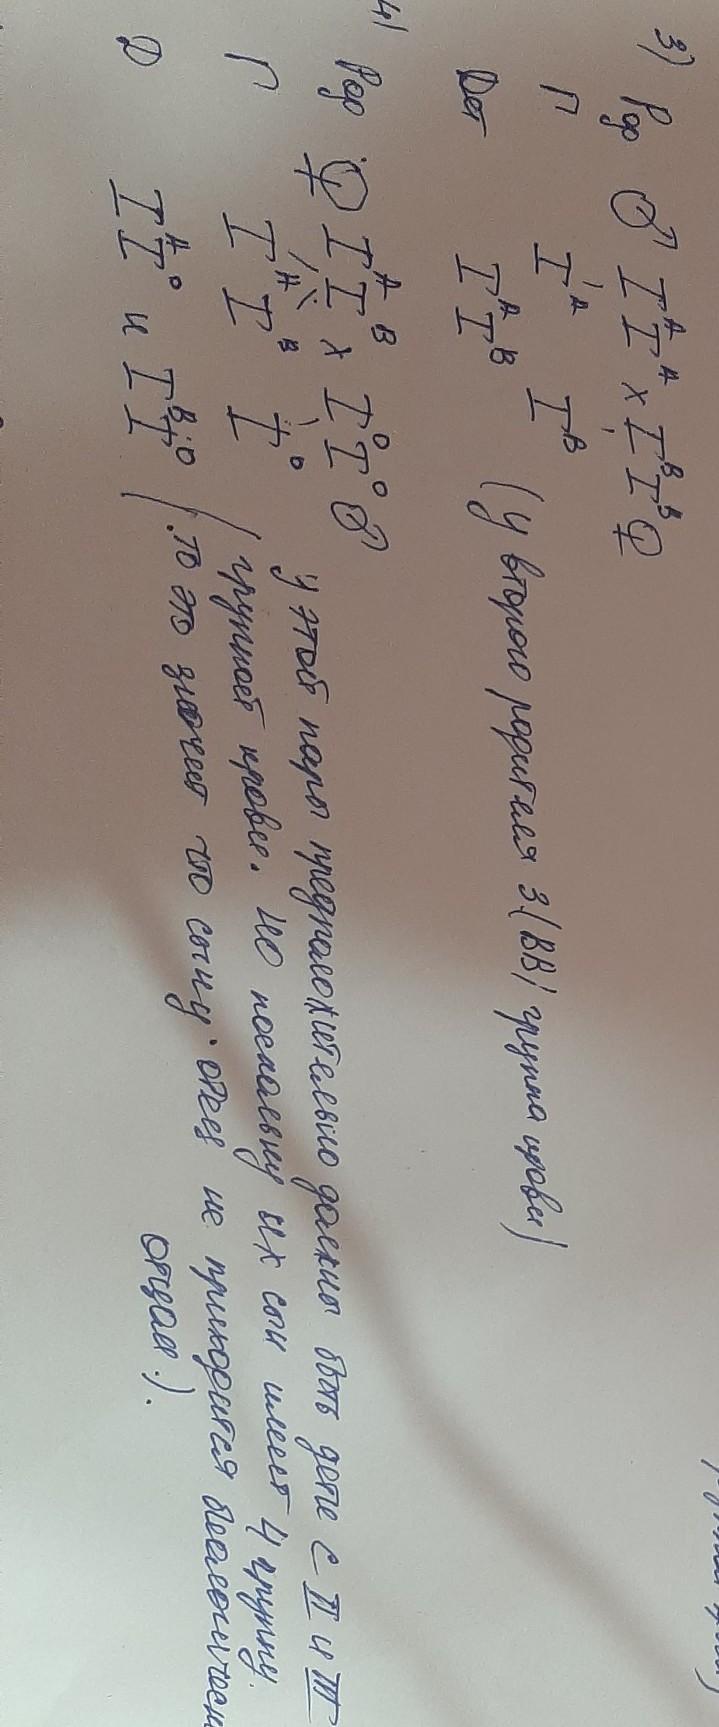 3) Род ♂ IᴬIᴬ x IᴮIᴮ ♀
Г Iᴬ Iᴮ
Дет IᴬIᴮ (у второго родителя 3(BB) группа крови)
4)
Род ♀ IᴬIᴮ x I⁰I⁰ ♂
Г Iᴬ Iᴮ I⁰
Д IᴬI⁰ и IᴮI⁰
у этой пары предположительно должны быть дети с II и III
(группой крови. но поскольку их сын имеет 4 группу.
то это значит что сыну отец не приходится биологическим
отцом).